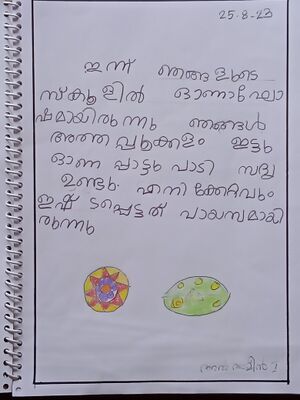 25-8-23
ഇന്ന് ഞങ്ങളുടെ
സ്കൂളിൽ ഓണാഘോ
ഷമായിരുന്നു ഞങ്ങൾ
അത്തപ്പൂക്കളം ഇട്ടു
ഓണപ്പാട്ടു പാടി സദ്യ
ഉണ്ടു. എനിക്കേറ്റവും
ഇഷ്ടപ്പെട്ടത് പായസമായി
രുന്നു